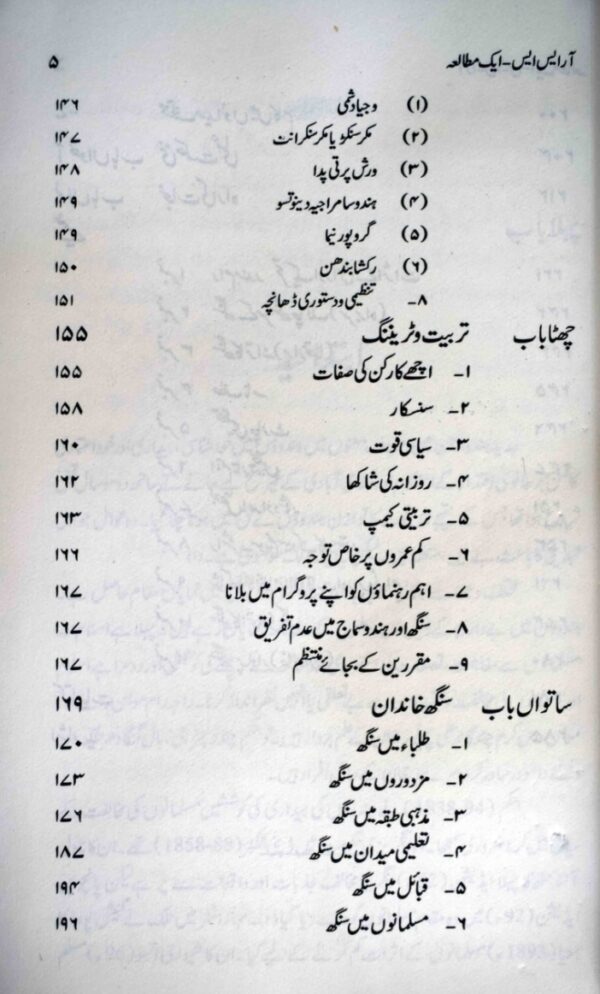 آر ایس ایس - ایک مطالعہ ۵
(۱) وجیادشمی ۱۴۶
(۲) مکر سنکویا مکر سنکرانت ۱۴۷
(۳) ورش پرتی پدا ۱۴۸
(۴) ہندو سامراجیہ دینوتسو ۱۴۹
(۵) گروپورنیما ۱۴۹
(۶) رکشا بندھن ۱۵۰
۸- تنظیمی و دستوری ڈھانچہ ۱۵۱
چھٹا باب تربیت و ٹریننگ ۱۵۵
۱- اچھے کارکن کی صفات ۱۵۵
۲- سنسکار ۱۵۸
۳- سیاسی قوت ۱۶۰
۴- روزانہ کی شاکھا ۱۶۲
۵- تربیتی کیمپ ۱۶۳
۶- کم عمروں پر خاص توجہ ۱۶۶
۷- اہم رہنماؤں کو اپنے پروگرام میں بلانا ۱۶۷
۸- سنگھ اور ہندو سماج میں عدم تفریق ۱۶۷
۹- مقررین کے بجائے منتظم ۱۶۷
ساتواں باب سنگھ خاندان ۱۶۹
۱- طلباء میں سنگھ ۱۷۰
۲- مزدوروں میں سنگھ ۱۷۳
۳- مذہبی طبقہ میں سنگھ ۱۷۶
۴- تعلیمی میدان میں سنگھ ۱۸۷
۵- قبائل میں سنگھ ۱۹۴
۶- مسلمانوں میں سنگھ ۱۹۶